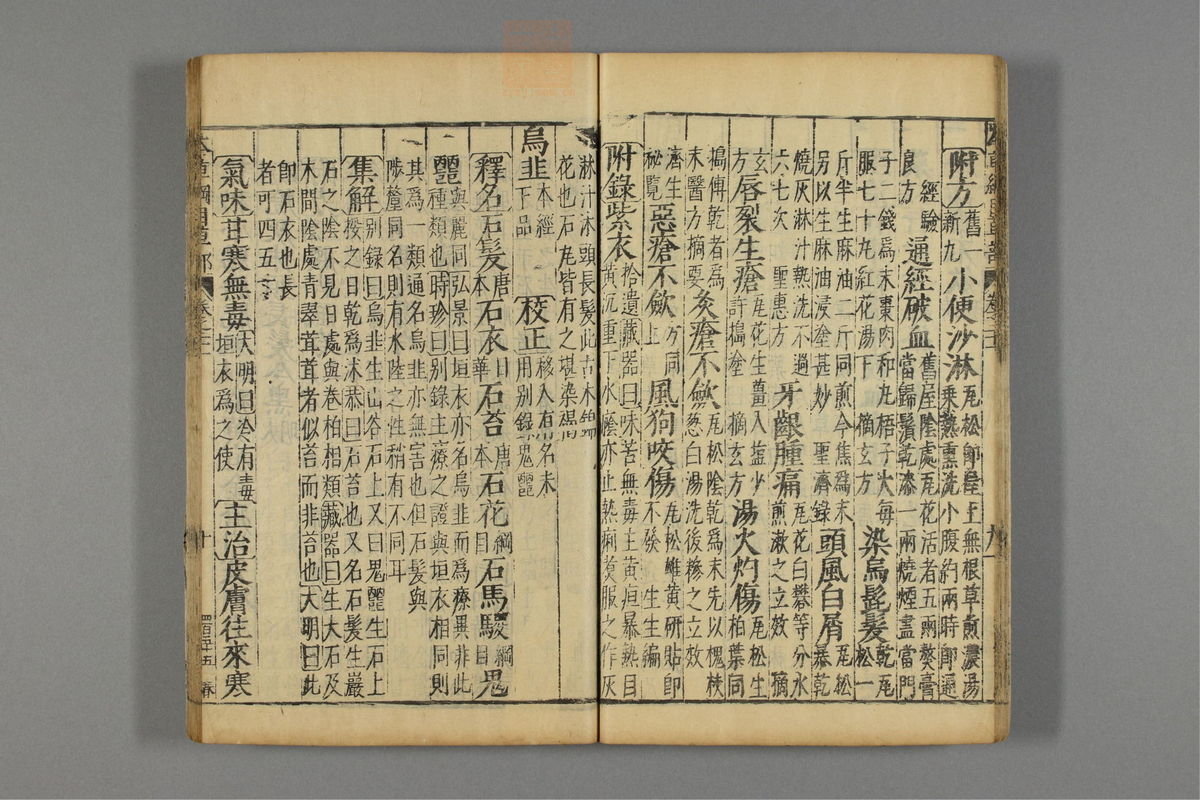 附方舊一新九小便沙淋瓦松即屋上無根草煎濃湯乘熱熏洗小腹約兩時即通
經驗良方通經破血舊屋陰處瓦花活者五兩熬膏當歸鬚乾漆一兩燒煙盡當門
子二錢爲末棗肉和丸梧子大每服七十丸紅花湯下摘玄方染烏髭髮乾瓦松一
斤半生麻油二斤同煎令焦爲末另以生麻油浸塗甚妙聖濟錄頭風白屑瓦松暴乾
燒灰淋汁熱洗不過六七次聖惠方牙齦腫痛瓦花白礬等分水煎漱之立效摘
玄方唇裂生瘡瓦花生薑入塩少許搗塗摘玄方湯火灼傷瓦松生柏葉同
搗傅乾者爲末醫方摘要灸瘡不斂瓦松陰乾爲末先以槐枝葱白湯洗後糝之立效
濟生秘覽惡瘡不斂方同上風狗咬傷瓦松雄黃研貼即不發生生編
附錄紫衣拾遺藏器曰味苦無毒主黃疸暴熱目黃沉重下水癊亦止熱痢煑服之作灰
淋汁沐頭長髮此古木錦花也石瓦皆有之堪染褐
烏韭本經下品校正移入有名未用別錄鬼䰡
釋名石髮唐本石衣日華石苔唐本石花綱目石馬騣綱目鬼
䰡與麗同弘景曰垣衣亦名烏韭而爲療異非此種類也時珍曰別錄主療之證與垣衣相同則
其爲一類通名烏韭亦無害也但石髮與陟釐同名則有水陸之性稍有不同耳
集解別錄曰烏韭生山谷石上又曰鬼䰡生石上挼之日乾爲沐恭曰石苔也又名石髮生巖
石之陰不見日處與卷柏相類藏器曰生大石及木間陰處青翠茸茸者似苔而非苔也大明曰此
即石衣也長者可四五寸
氣味甘寒無毒大明曰冷有毒垣衣爲之使主治皮膚往來寒